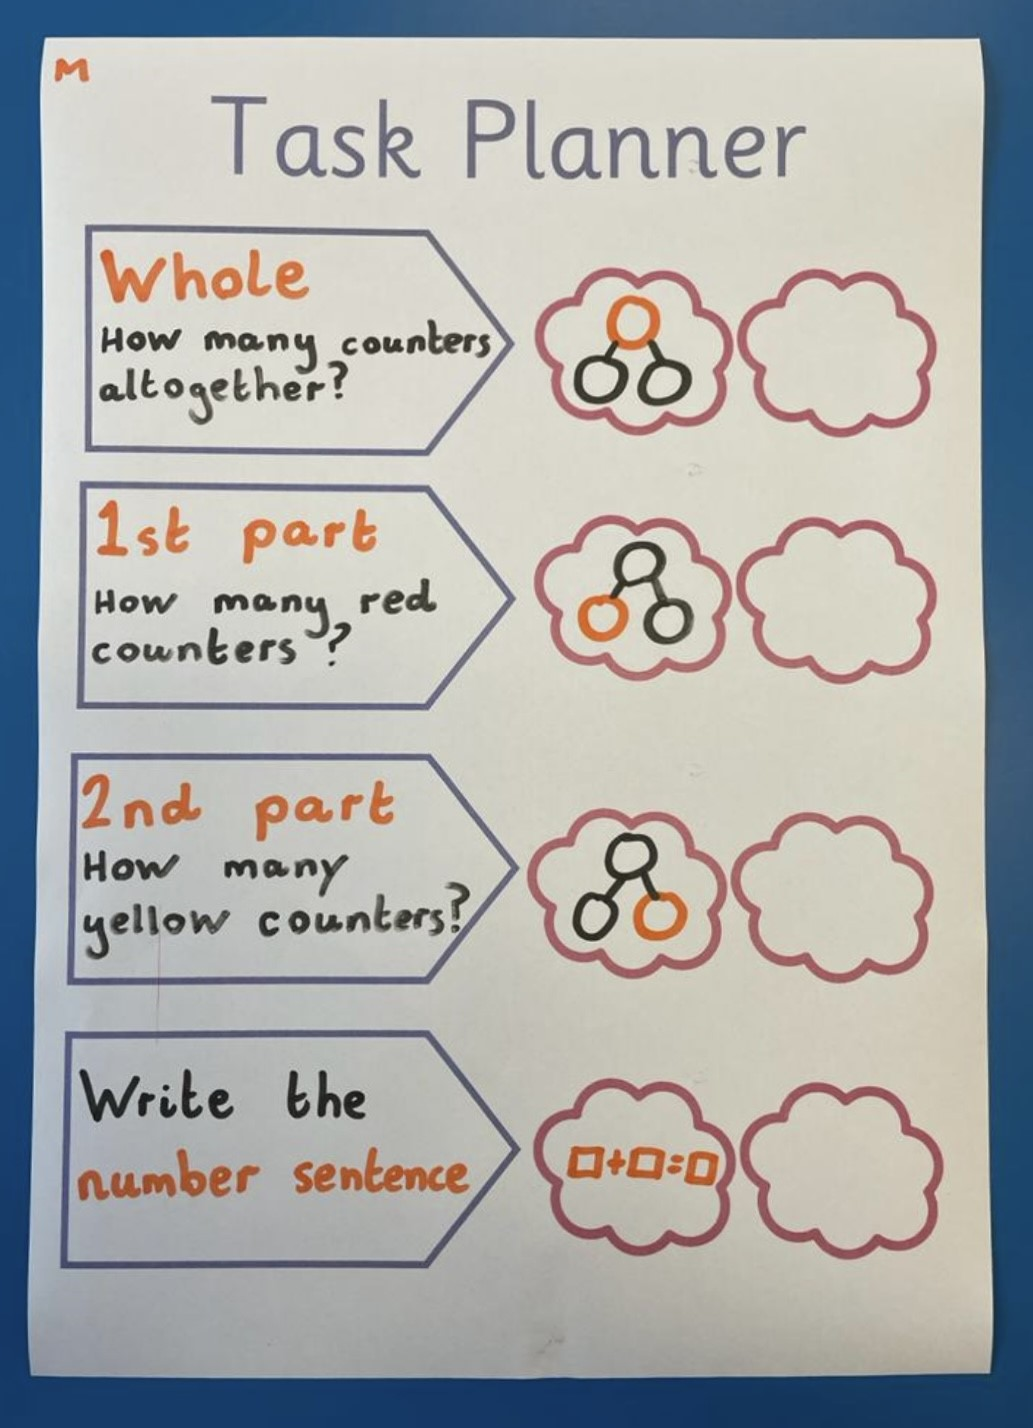 M
Task Planner
Whole
How many counters
altogether?
1st part
How many red
counters?
2nd part
How many
yellow counters?
Write the
number sentence
□+□=□